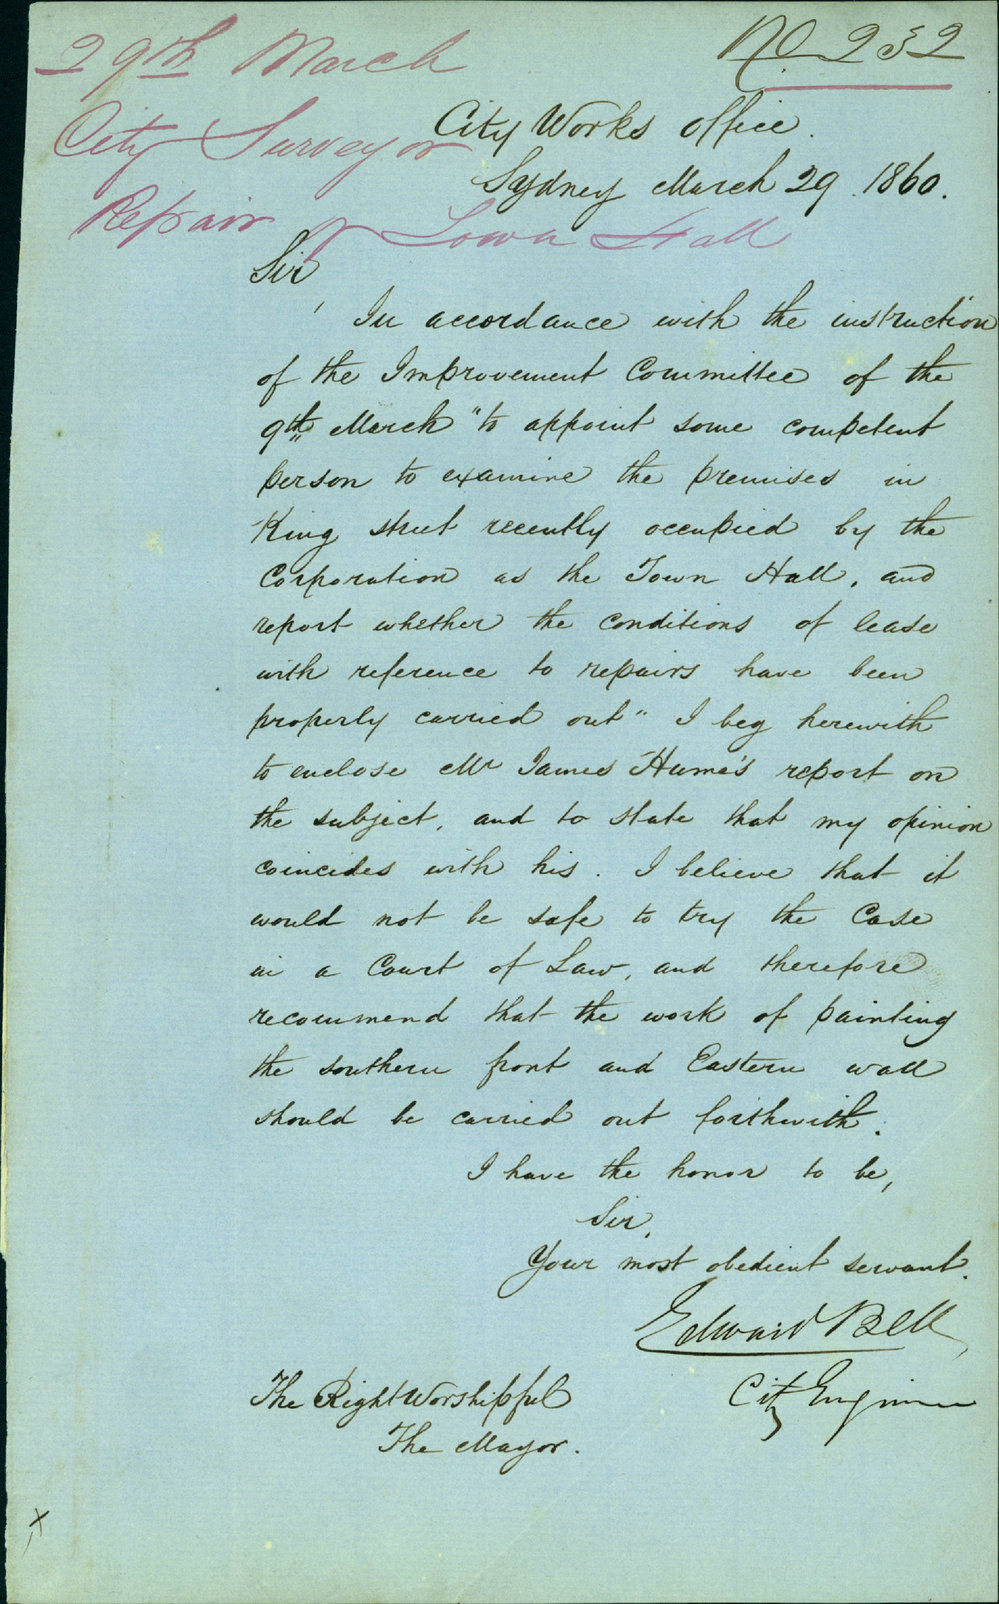 29th March
No 252
City Surveyor
City Works office.
Sydney March 29. 1860.
Repair of Town Hall
Sir
In accordance with the instruction
of the Improvement Committee of the
9th March "to appoint some competent
person to examine the premises in
King street recently occupied by the
Corporation as the Town Hall, and
report whether the conditions of lease
with reference to repairs have been
properly carried out" I beg herewith
to enclose Mr James Hume's report on
the subject, and to state that my opinion
coincides with his. I believe that it
would not be safe to try the Case
in a Court of Law, and therefore
recommend that the work of painting
the southern front and Eastern wall
should be carried out forthwith.
I have the honor to be,
Sir,
Your most obedient servant.
Edward Bell
City Engineer
The Right Worshipful
The Mayor.
x